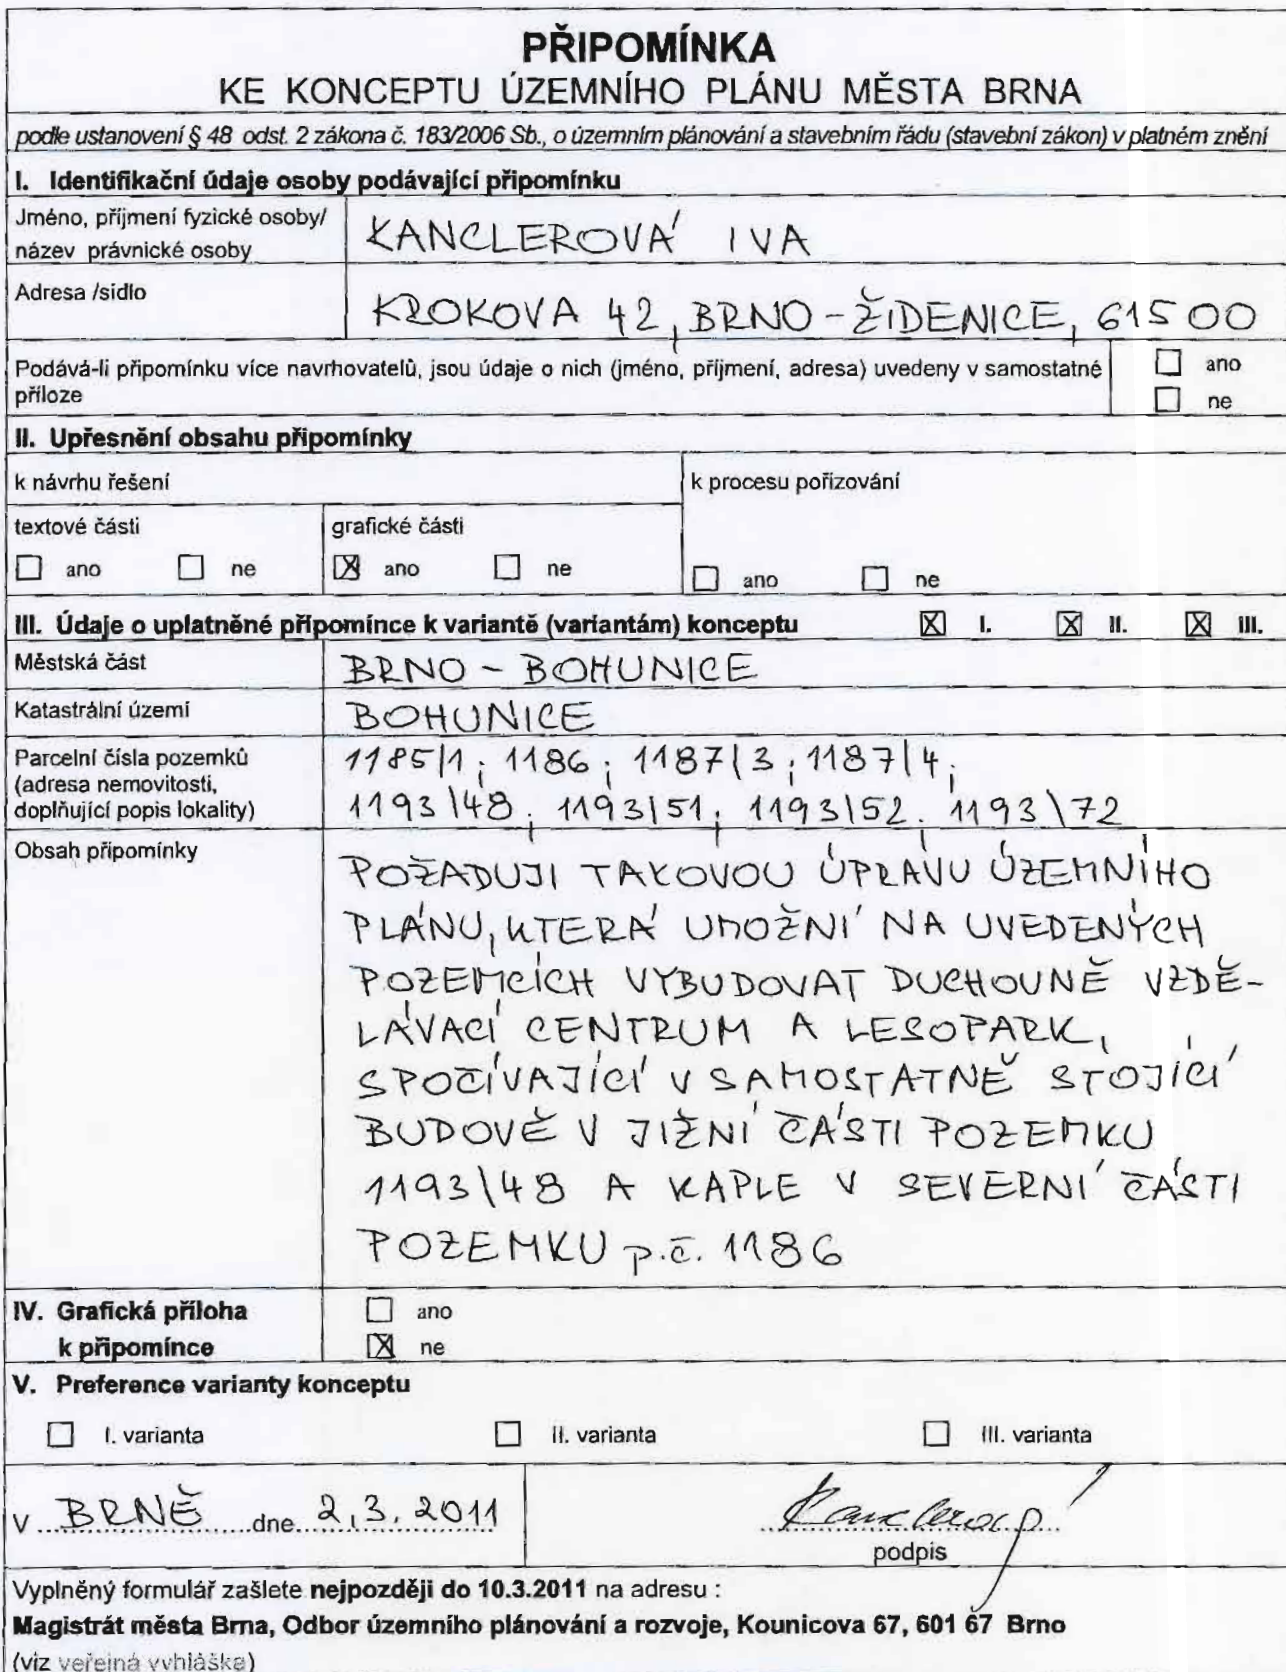 PŘIPOMÍNKA
KE KONCEPTU ÚZEMNÍHO PLÁNU MĚSTA BRNA
podle ustanovení § 48 odst. 2 zákona č. 183/2006 Sb., o územním plánování a stavebním řádu (stavební zákon) v platném znění
I. Identifikační údaje osoby podávající připomínku
Jméno, příjmení fyzické osoby/
název právnické osoby
KANCLEROVÁ IVA
Adresa /sídlo
KROKOVA 42, BRNO-ŽIDENICE, 615 00
Podává-li připomínku více navrhovatelů, jsou údaje o nich (jméno, příjmení, adresa) uvedeny v samostatné
příloze
☐ ano
☐ ne
II. Upřesnění obsahu připomínky
k návrhu řešení
k procesu pořizování
textové části
grafické části
☐ ano ☐ ne ☒ ano ☐ ne ☐ ano ☐ ne
III. Údaje o uplatněné připomínce k variantě (variantám) konceptu ☒ I. ☒ II. ☒ III.
Městská část
BRNO - BOHUNICE
Katastrální území
BOHUNICE
Parcelní čísla pozemků
(adresa nemovitosti,
doplňující popis lokality)
1185/1; 1186; 1187/3; 1187/4;
1193\48; 1193/51; 1193\52; 1193\72
Obsah připomínky
POŽADUJI TAKOVOU ÚPRAVU ÚZEMNÍHO
PLÁNU, KTERÁ UMOŽNÍ NA UVEDENÝCH
POZEMCÍCH VYBUDOVAT DUCHOVNĚ VZDĚ-
LÁVACÍ CENTRUM A LESOPARK,
SPOČÍVAJÍCÍ V SAMOSTATNĚ STOJÍCÍ
BUDOVĚ V JIŽNÍ ČÁSTI POZEMKU
1193\48 A KAPLE V SEVERNÍ ČÁSTI
POZEMKU p.č. 1186
IV. Grafická příloha
k připomínce
☐ ano
☒ ne
V. Preference varianty konceptu
☐ I. varianta ☐ II. varianta ☐ III. varianta
V BRNĚ dne 2.3.2011
Kanclerová
podpis
Vyplněný formulář zašlete nejpozději do 10.3.2011 na adresu :
Magistrát města Brna, Odbor územního plánování a rozvoje, Kounicova 67, 601 67 Brno
(viz veřejná vyhláška)